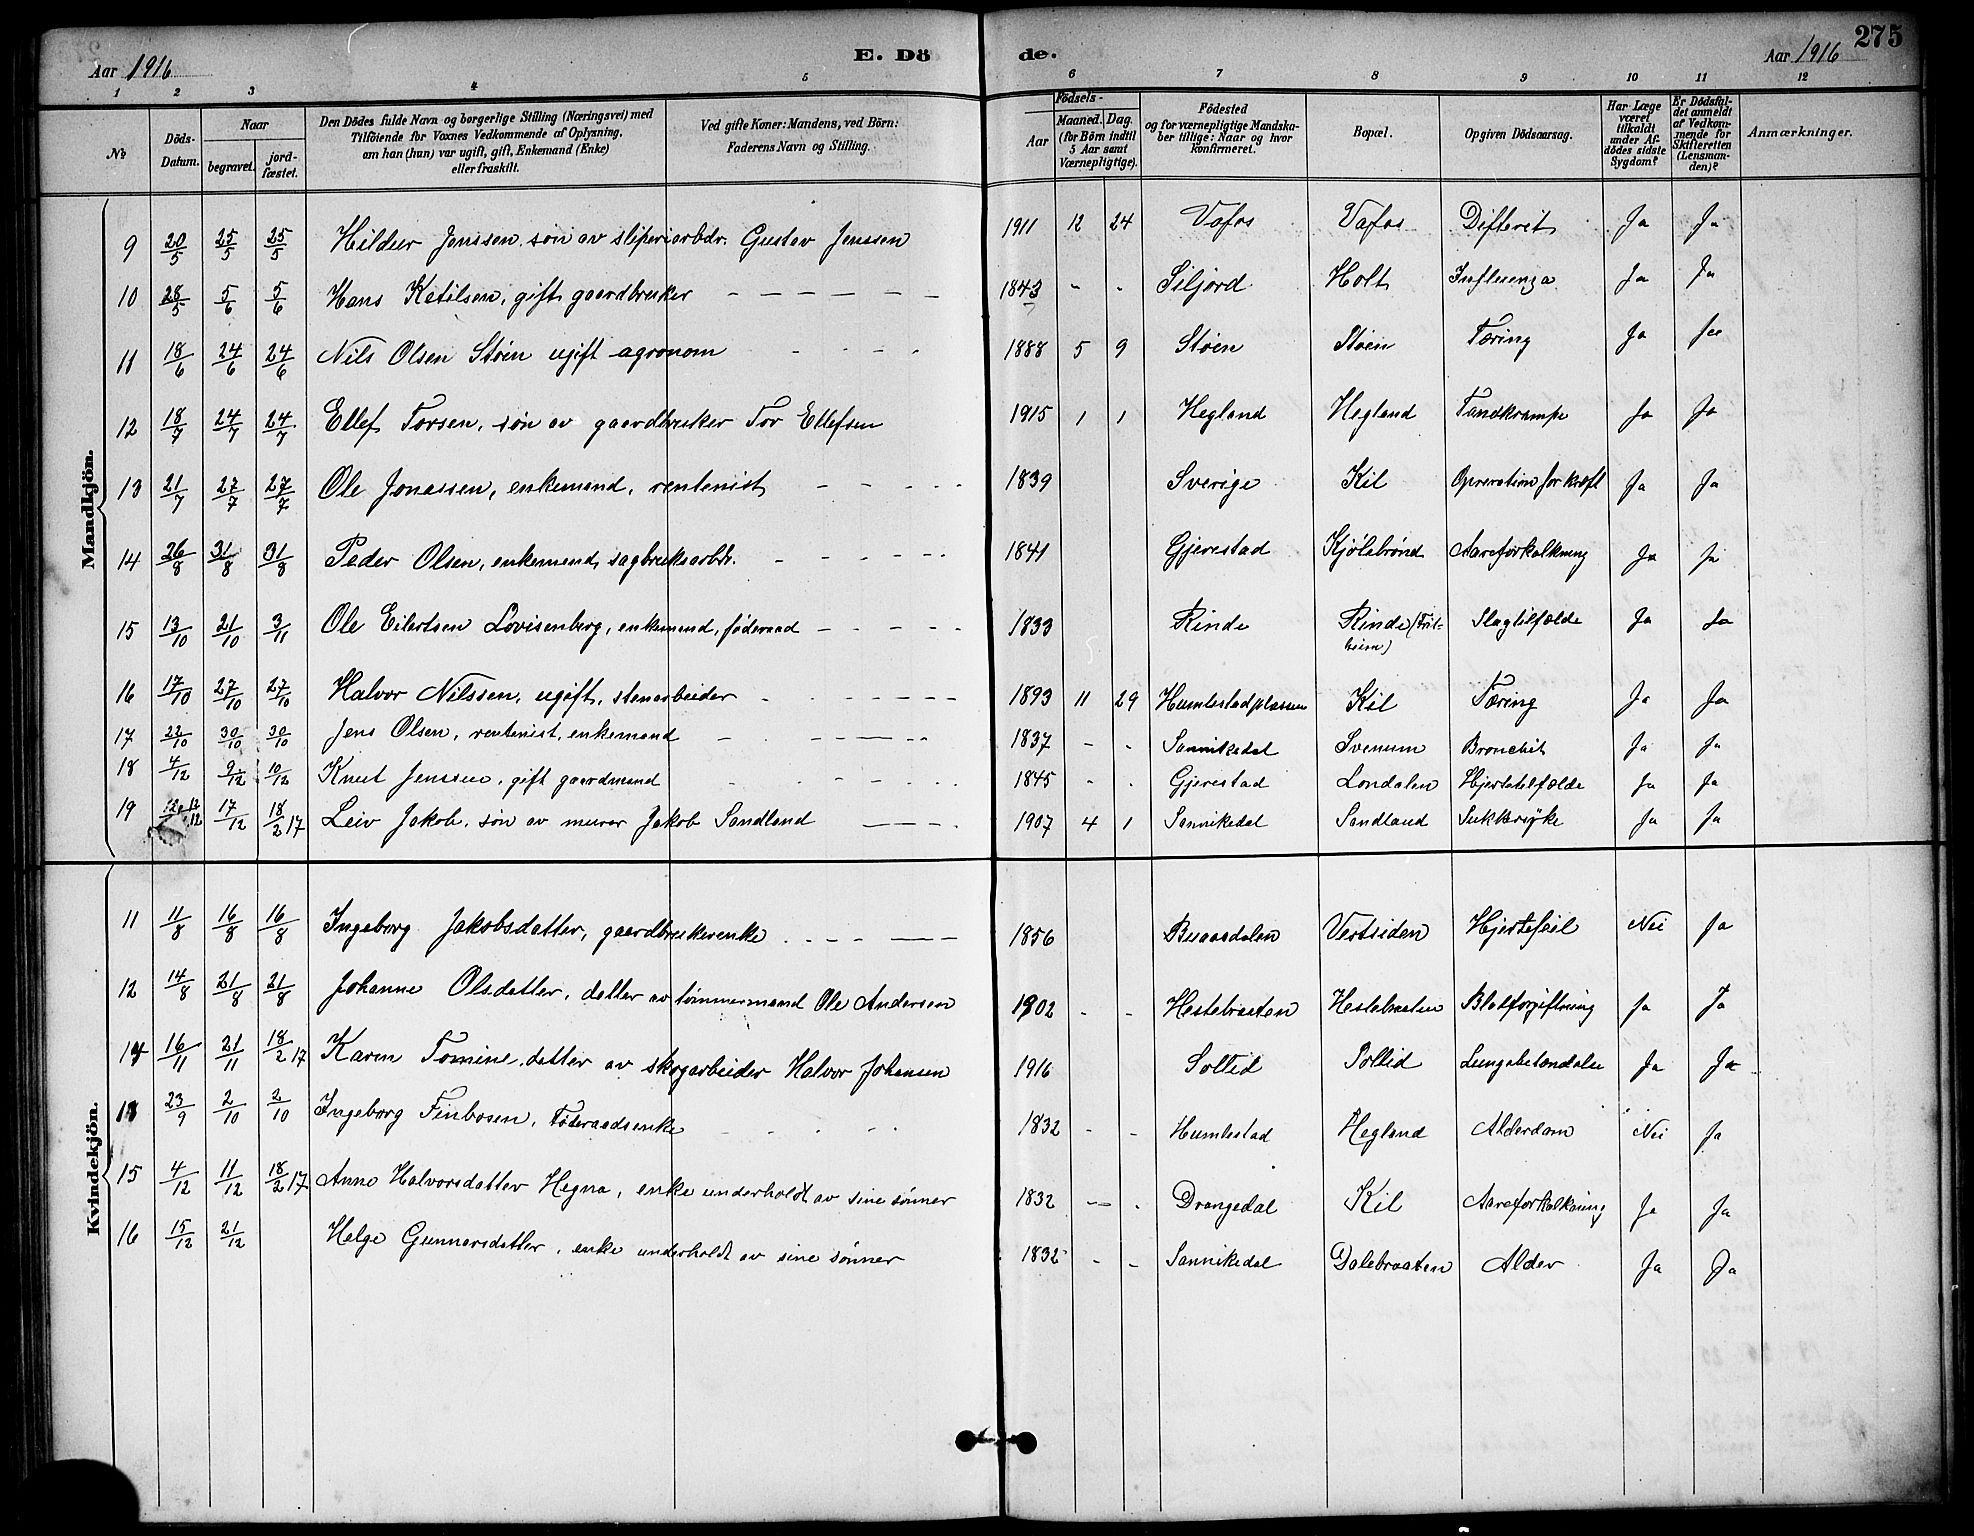 275
Aar 1916 E. Dö de. Aar 1916
1 2 3 4 5 6 7 8 9 10 11 12
№ Döds-Datum. Naar begravet. jord-fæstet. Den Dödes fulde Navn og borgerlige Stilling (Næringsvei) med Tilföiende for Voxnes Vedkommende af Oplysning, om han (hun) var ugift, gift, Enkemand (Enke) eller fraskilt. Ved gifte Koner: Mandens, ved Börn: Faderens Navn og Stilling. Födsels- Aar Maaned. Dag. (for Börn indtil 5 Aar samt Værnepligtige). Födested og for værnepligtige Mandskaber tillige: Naar og hvor konfirmeret. Bopæl. Opgiven Dödsaarsag. Har Læge været tilkaldt under Afdödes sidste Sygdom? Er Dödsfaldet anmeldt af Vedkommende for Skifteretten (Lensmanden)? Anmærkninger.
Mandkjön.
9 20/5 25/5 25/5 Hildur Jenssen, søn av sliperiarbdr. Gustav Jenssen 1911 12 24 Vafos Vafos Difterit Ja Ja
10 28/5 5/6 5/6 Hans Ketilsen, gift, gaardbruker 1843 - - Siljord Holt Influenza Ja Ja
11 18/6 24/6 24/6 Nils Olsen Støen ugift agronom 1888 5 9 Støen Støen Tæring Ja Ja
12 18/7 24/7 24/7 Ellef Torsen, søn av gaardbruker Tor Ellefsen 1915 1 1 Hegland Hegland Tandkrampe Ja Ja
13 21/7 27/7 27/7 Ole Jonassen, enkemand, rentenist 1839 Sverige Kil Opreration for kræft Ja Ja
14 26/8 31/8 31/8 Peder Olsen, enkemand, sagbruksarbdr. 1841 Gjerestad Kjølebrønd Aareforkalkning Ja Ja
15 13/10 21/10 3/11 Ole Eilertsen Lovisenberg, enkemand, føderaad 1833 Rinde Rinde (Fritheim) Slagtilfælde Ja Ja
16 17/10 27/10 27/10 Halvor Nilssen, ugift, stenarbeider 1893 11 29 Humlestadplassen Kil Tæring Ja Ja
17 22/10 30/10 30/10 Jens Olsen, rentenist, enkemand 1837 - - Sannikedal Svenum Bronchit Ja Ja
18 4/12 9/12 10/12 Knut Jenssen, gift gaardmand 1845 - - Gjerestad Londalen Hjertetilfælde Ja Ja
19 12/12 17/12 18/2 17 Leiv Jakob, søn av murer Jakob Sandland 1907 4 1 Sannikedal Sandland Sukkersyke Ja Ja
Kvindekjön.
11 11/8 16/8 16/8 Ingeborg Jakobsdatter, gaardbrukerenke 1856 Buaasdalen Vestsiden Hjertefeil Nei Ja
12 14/8 21/8 21/8 Johanne Olsdatter, datter av tømmermand Ole Andersen 1902 - - Hestebraaten Hestebraaten Blodforgiftning Ja Ja
14 16/11 21/11 18/2 17 Karen Tomine, datter av skogarbeider Halvor Johansen 1916 Soltid Soltid Lungebetændelse Ja Ja
13 23/9 2/10 2/10 Ingeborg Finbosen, Føderaadsenke 1832 - - Humlestad Hegland Alderdom Nei Ja
15 4/12 11/12 18/2 17 Anne Halvorsdatter Hegna, enke underholdt av sine sønner 1832 - - Drangedal Kil Aareforkalkning Ja Ja
16 15/12 21/12 Helge Gunnarsdatter, enke underholdt av sine sønner 1832 - - Sannikedal Dalebraaten Alder Ja Ja